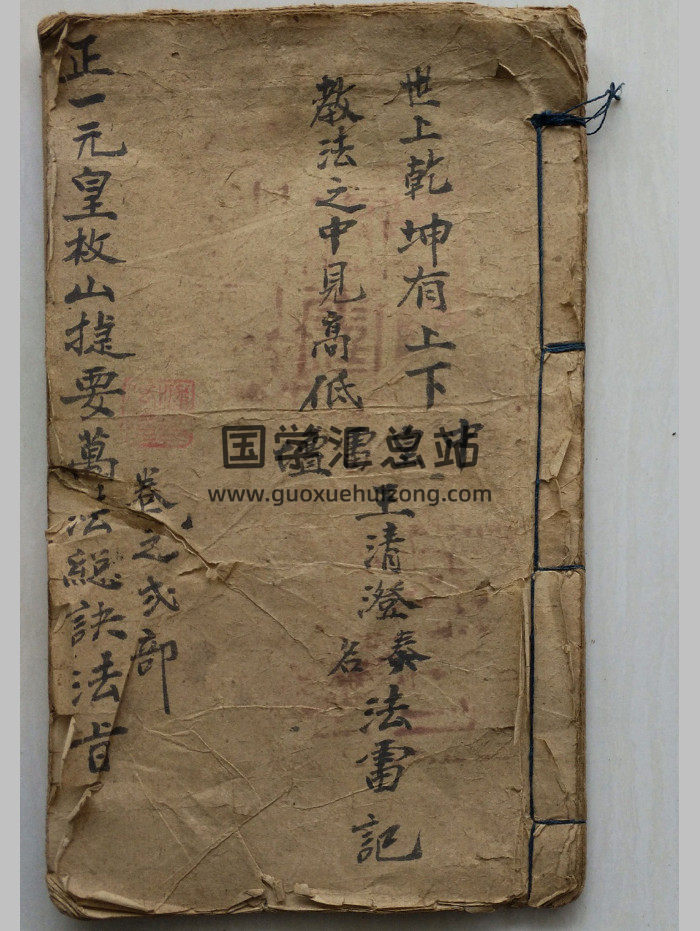 世上乾坤有上下
教法之中見高低
王清澄奏名法雷記
卷之弍部
正一元皇枚山捷要萬法総訣法旨
国学汇总站
www.guoxuehuizong.com